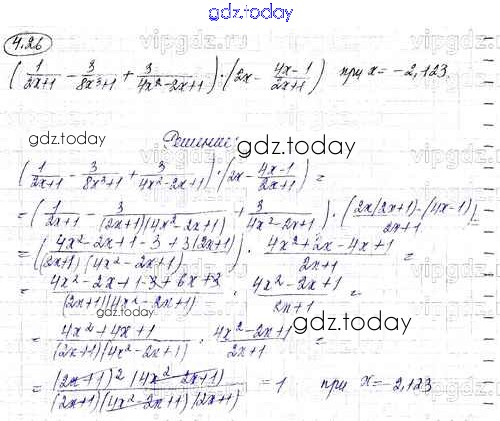 gdz.today
4.26
(1/(2x+1) - 3/(8x³+1) + 3/(4x²-2x+1)) · (2x - (4x-1)/(2x+1)) при x = -2,123.
Решение:
gdz.today
(1/(2x+1) - 3/(8x³+1) + 3/(4x²-2x+1)) · (2x - (4x-1)/(2x+1)) =
= (1/(2x+1) - 3/((2x+1)(4x²-2x+1)) + 3/(4x²-2x+1)) · (2x(2x+1)-(4x-1))/(2x+1) =
= ((4x²-2x+1-3+3(2x+1))/((2x+1)(4x²-2x+1))) · (4x²+2x-4x+1)/(2x+1) =
= (4x²-2x+1-3+6x+3)/((2x+1)(4x²-2x+1)) · (4x²-2x+1)/(2x+1) =
gdz.today
= (4x²+4x+1)/((2x+1)(4x²-2x+1)) · (4x²-2x+1)/(2x+1) =
= ((2x+1)²(4x²-2x+1))/((2x+1)(4x²-2x+1)(2x+1)) = 1 при x = -2,123
gdz.today